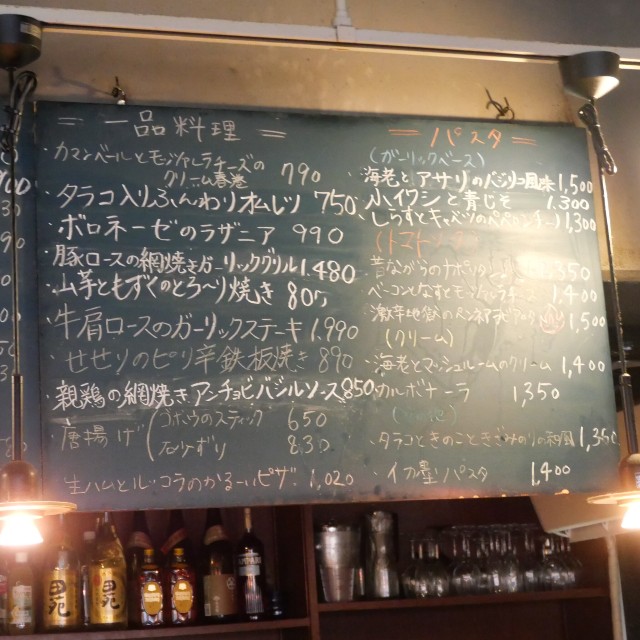 = 一品料理 =
・カマンベールとモッツァレラチーズの
クリーム春巻 790
・タラコ入りふんわりオムレツ 750
・ボロネーゼのラザニア 990
豚ロースの網焼きガーリックグリル 1,480
・山芋ともずくのとろ〜り焼き 80
・牛肩ロースのガーリックステーキ 1,990
・せせりのピリ辛鉄板焼き 890
・親鶏の網焼きアンチョビバジルソース 850
・唐揚げ ゴボウのスティック 650
830
・生ハムとルッコラのかる〜いピザ 1,020
= パスタ =
(ガーリックベース)
海老とアサリのバジリコ風味 1,500
小イワシと青じそ 1.300
しらすとキャベツのペペロンチーノ 1,300
(トマトソース)
昔ながらのナポリタン 350
ベーコンとなすとモッツァレラチーズ 1,400
激辛地獄のペンネアラビアータ 1,500
(クリーム)
・海老とマッシュルームのクリーム 1,400
カルボナーラ 1,350
・タラコときのこときざみのりの和風 1,350
・イカ墨パスタ 1,400
田苑
田苑
角
角